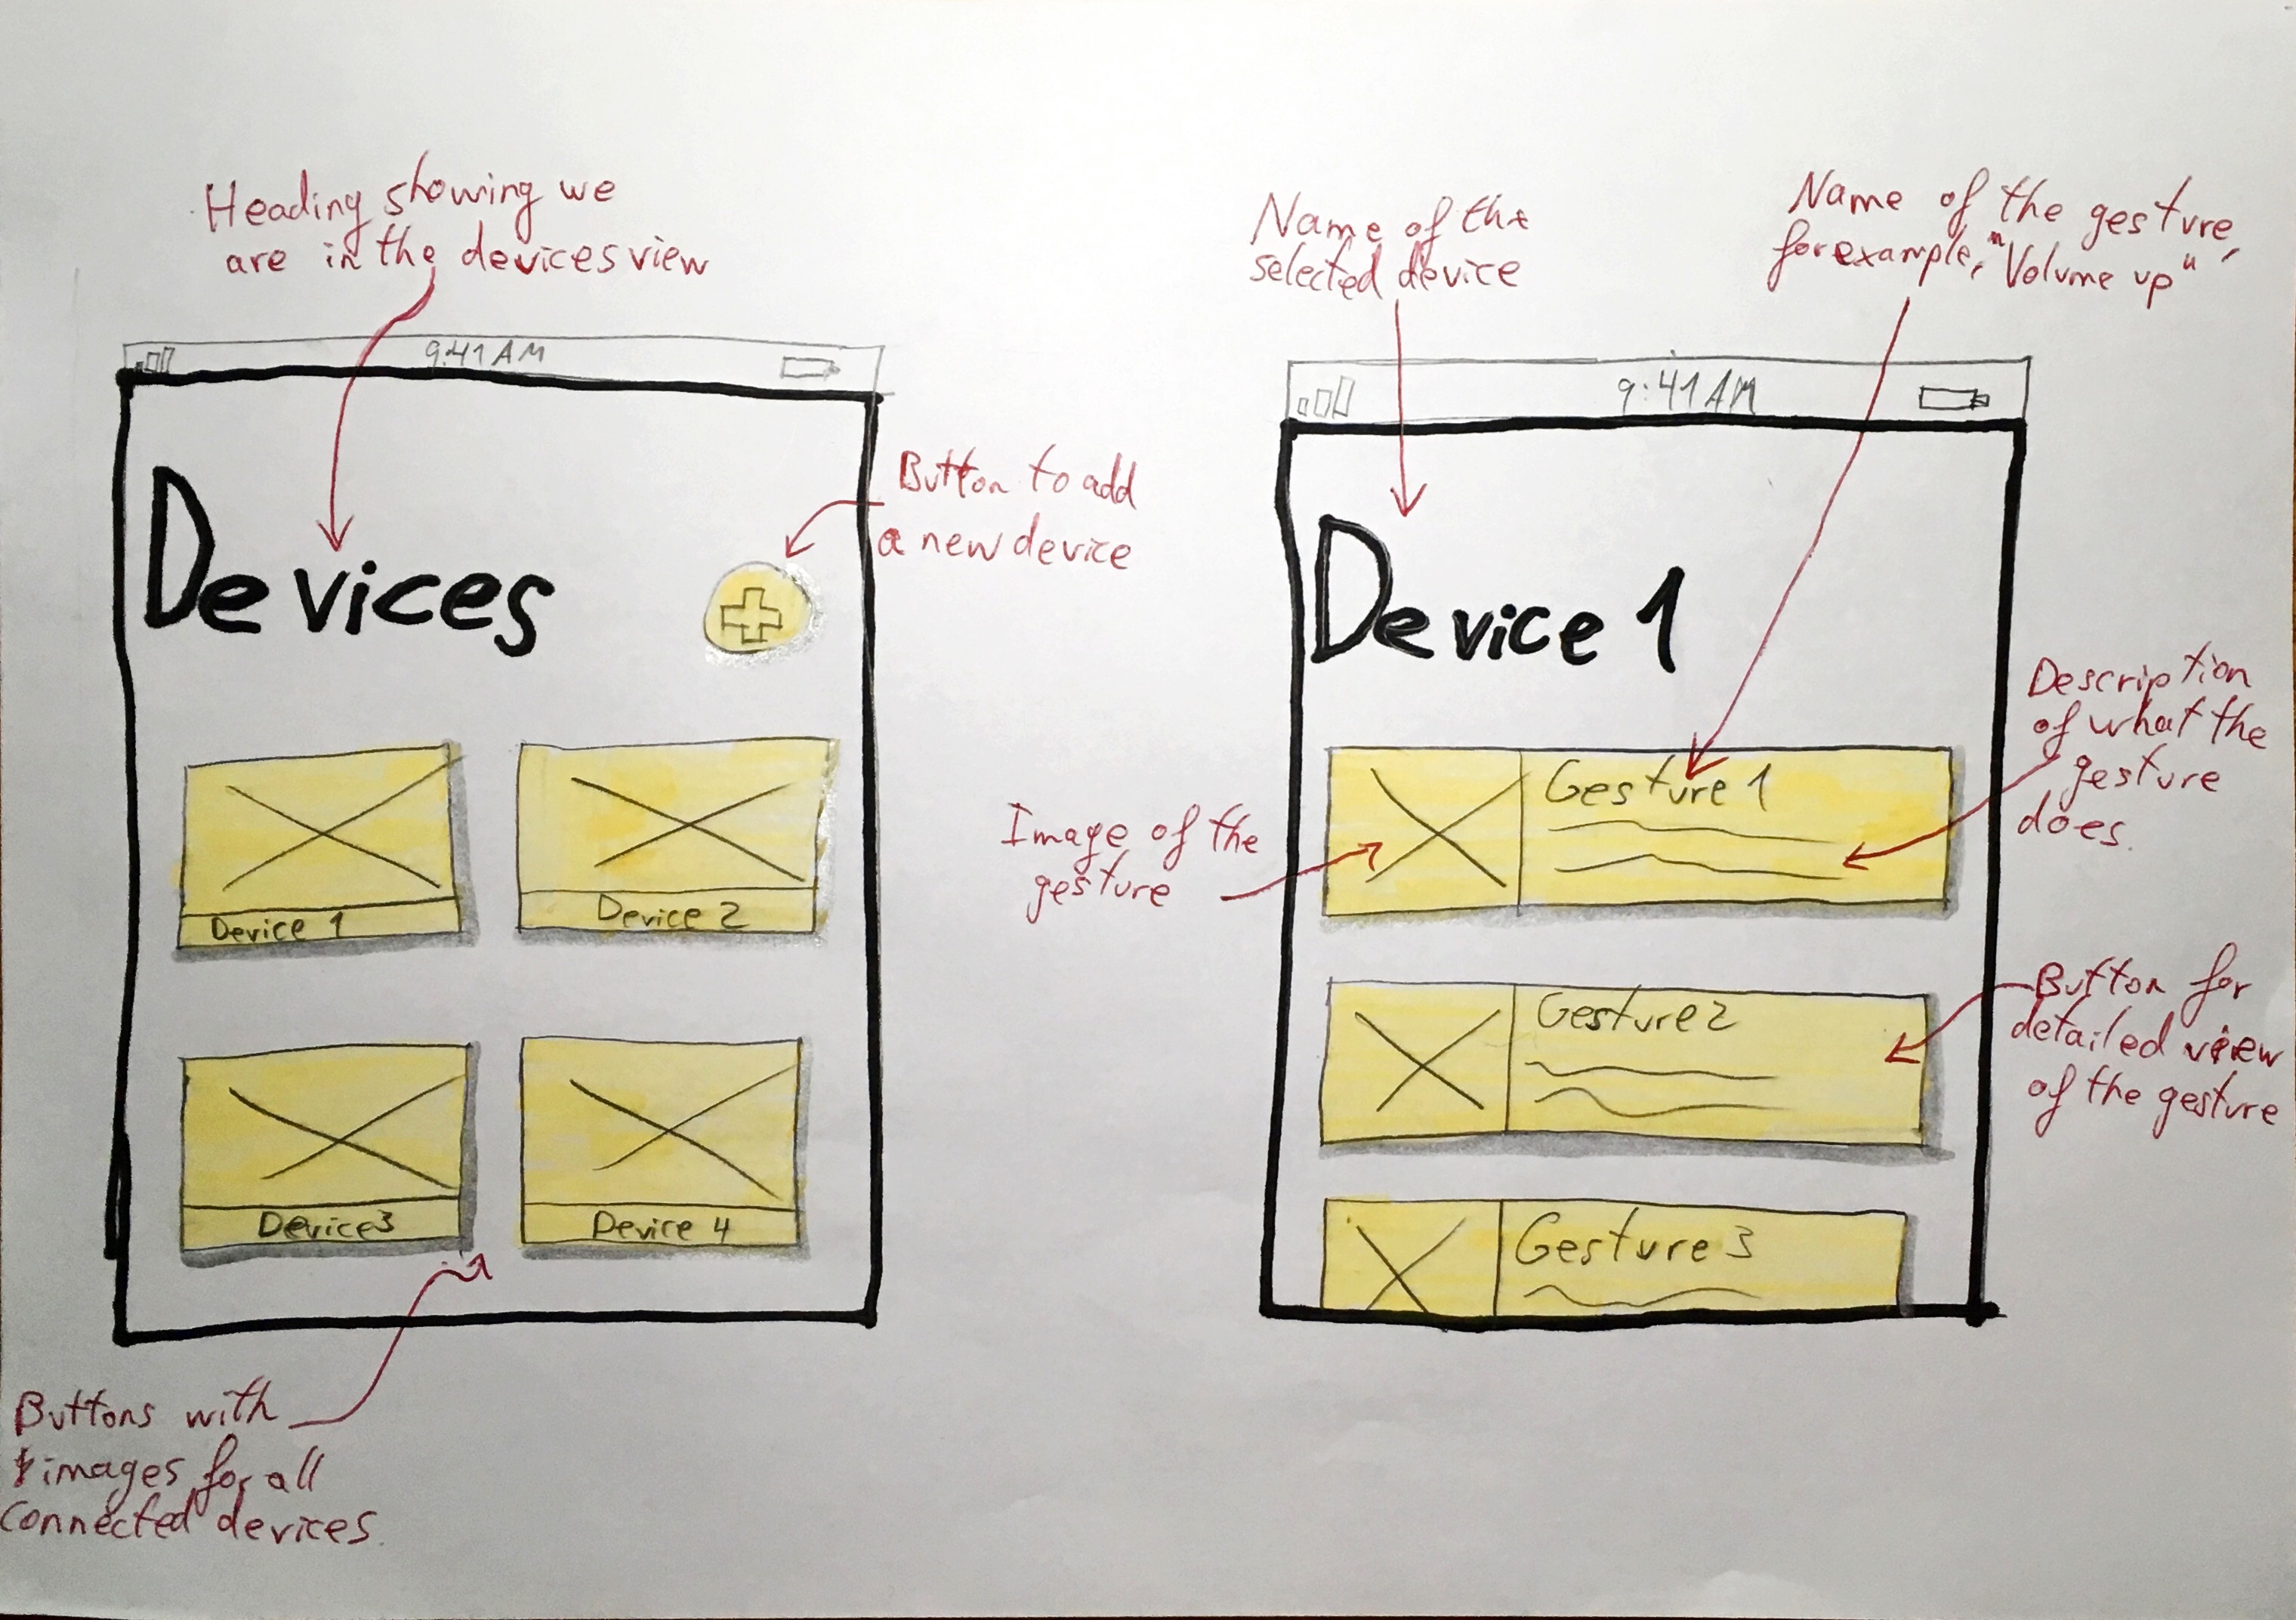 Heading showing we
are in the devices view
9:41 AM
Devices
Button to add
a new device
Device 1
Device 2
Device3
Device 4
Buttons with
images for all
connected devices.
Name of the
selected device
Name of the gesture,
for example, "Volume up"
9:41 AM
Device 1
Image of the
gesture
Gesture 1
Description
of what the
gesture
does.
Gesture2
Button for
detailed view
of the gesture
Gesture 3